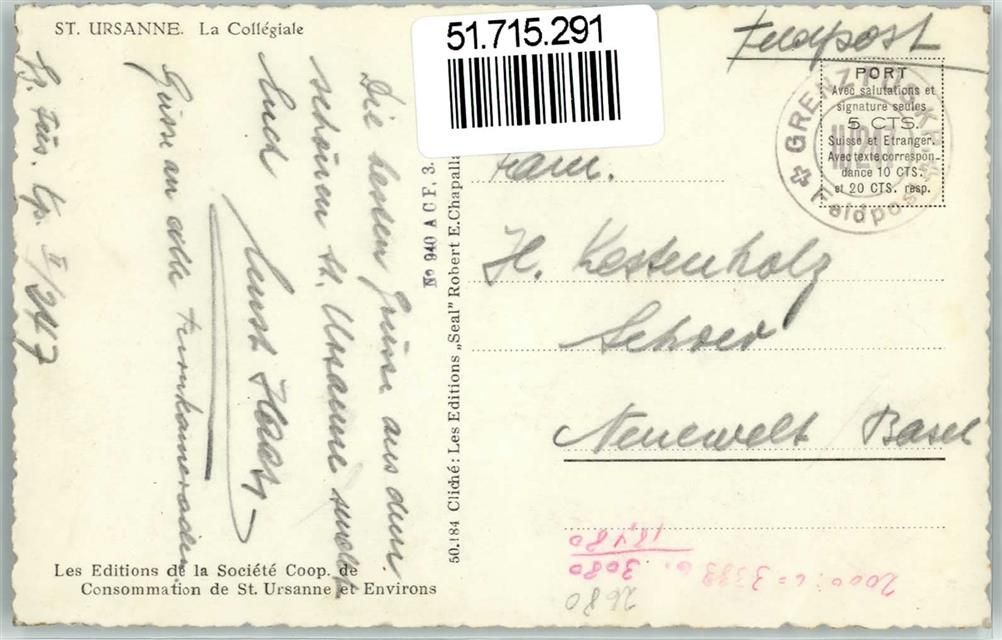 ST. URSANNE. La Collégiale
51.715.291
Feldpost
PORT
Avec salutations et
signature seules
5 CTS.
Suisse et Etranger.
Avec texte correspon-
dance 10 CTS.
et 20 CTS. resp.
GRENZ FÜS. KP.
II/247
Feldpost
Die besten Grüsse aus dem
schönen St. Ursanne sendet
Euch
Ernst
Grüsse an alle Turnkameraden
Gz. Füs. Kp. II/247
Fam.
H. Kestenholz
Neuewelt / Basel
No 940 A C F. 3.
50.184 Cliché: Les Editions „Seal" Robert E. Chapalla
Les Editions de la Société Coop. de
Consommation de St. Ursanne et Environs
18,480
3080
2680